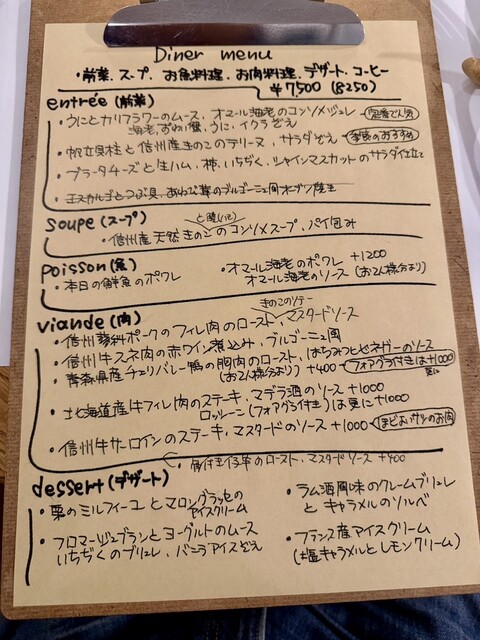 Diner menu
・前菜、スープ、お魚料理、お肉料理、デザート、コーヒー
¥7500 (8250)
entrée (前菜)
・うにとカリフラワーのムース、オマール海老のコンソメジュレ 定番で人気
海老、おわり蟹、うに、イクラぞえ
・帆立貝柱と信州産きのこのテリーヌ、サラダぞえ 季節のおすすめ
・ブラータチーズと生ハム、柿、いちぢく、シャインマスカットのサラダ仕立て
・エスカルゴとつぶ貝、あわび茸のブルゴーニュ風オーブン焼き
soupe (スープ)
と蛤(ハモ)
・信州産天然きのこのコンソメスープ、パイ包み
poisson (魚)
・本日の鮮魚のポワレ
・オマール海老のポワレ +1200
オマール海老のソース (お2人様分より)
viande (肉)
きのこのソテー
・信州蓼科ポークのフィレ肉のロースト、マスタードソース
・信州牛スネ肉の赤ワイン煮込み、ブルゴーニュ風
・青森県産チェリバレー鴨の胸肉のロースト、はちみつとビネガーのソース
(お2人様分より) +400 フォアグラ付きは+1000
更に
・北海道産牛フィレ肉のステーキ、マデラ酒のソース +1000
ロッシーニ (フォアグラ付き) は更に +1000
・信州牛サーロインのステーキ、マスタードのソース +1000 ほどよいサシのお肉
・骨付き仔羊のロースト、マスタードソース +400
dessert (デザート)
・栗のミルフィーユとマロングラッセの
アイスクリーム
・フロマージュブランとヨーグルトのムース
いちぢくのブリュレ、バニラアイスぞえ
・ラム酒風味のクレームブリュレ
とキャラメルのソルベ
・フランス産アイスクリーム
(塩キャラメルとレモンクリーム)